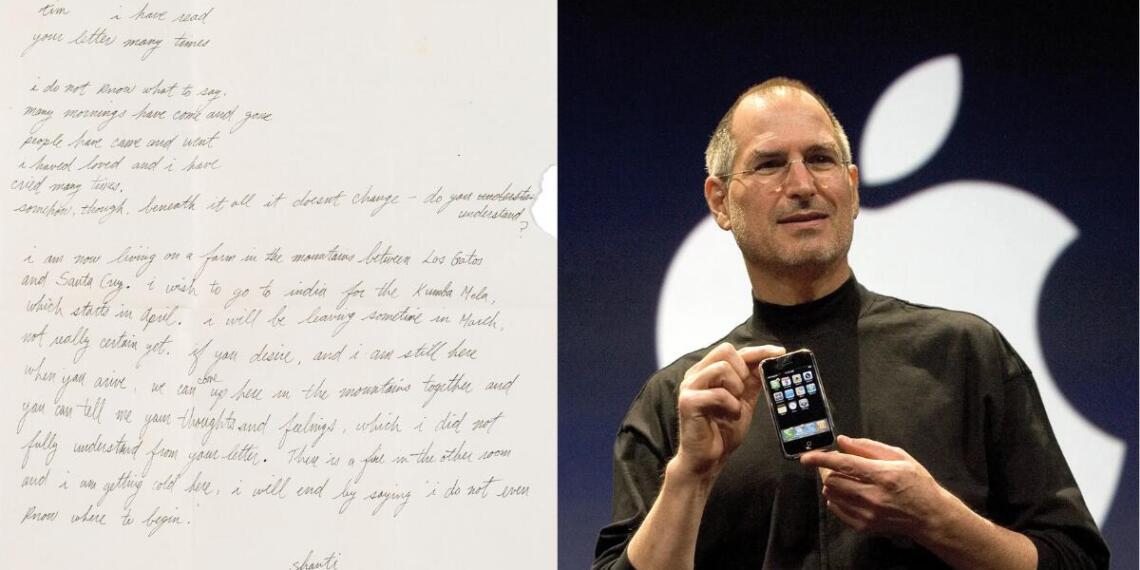 tim i have read
your letter many times
i do not know what to say.
many mornings have come and gone
people have came and went
i haved loved and i have
cried many times.
somehow, though, beneath it all it doesnt change - do you understa
understand
?
i am now living on a farm in the mountains between Los Gatos
and Santa Cruz. i wish to go to india for the Kumba Mela,
which starts in April. i will be leaving sometime in March,
not really certain yet. if you desire, and i am still here
when you arive, we can come up here in the mountains together and
you can tell me your thoughts and feelings, which i did not
fully understand from your letter. There is a fire in the other room
and i am getting cold here. i will end by saying 'i do not even
know where to begin.'
shanti